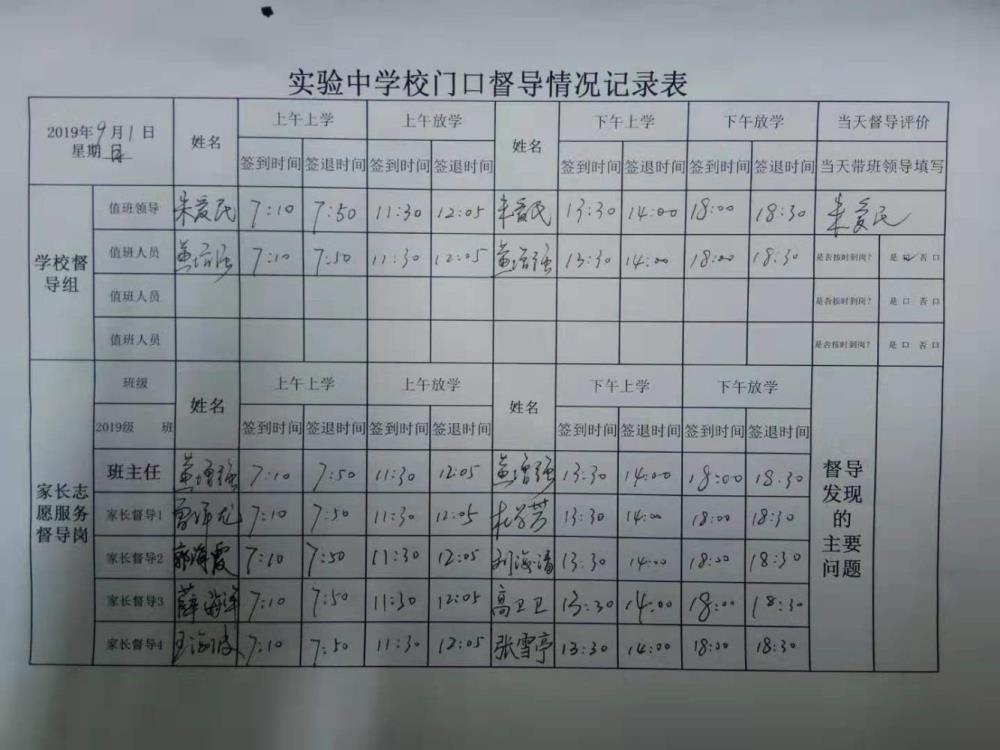 实验中学校门口督导情况记录表
2019年9月1日 姓名 上午上学 上午放学 姓名 下午上学 下午放学 当天督导评价
星期日 签到时间 签退时间 签到时间 签退时间 签到时间 签退时间 签到时间 签退时间 当天带班领导填写
学校督导组
值班领导 朱爱民 7:10 7:50 11:30 12:05 朱爱民 13:30 14:00 18:00 18:30 朱爱民
值班人员 7:10 7:50 11:30 12:05 13:30 14:00 18:00 18:30 是否按时到岗? 是 口 否 口
值班人员 是否按时到岗? 是 口 否 口
值班人员 是否按时到岗? 是 口 否 口
家长志愿服务督导岗
班级 姓名 上午上学 上午放学 姓名 下午上学 下午放学 督导发现的主要问题
2019级 班 签到时间 签退时间 签到时间 签退时间 签到时间 签退时间 签到时间 签退时间
班主任 7:10 7:50 11:30 12:05 13:30 14:00 18:00 18:30
家长督导1 7:10 7:50 11:30 12:05 13:30 14:00 18:00 18:30
家长督导2 郭海霞 7:10 7:50 11:30 12:05 刘海清 13:30 14:00 18:00 18:30
家长督导3 薛海洋 7:10 7:50 11:30 12:05 高卫卫 13:30 14:00 18:00 18:30
家长督导4 王海波 7:10 7:50 11:30 12:05 张雪亭 13:30 14:00 18:00 18:30